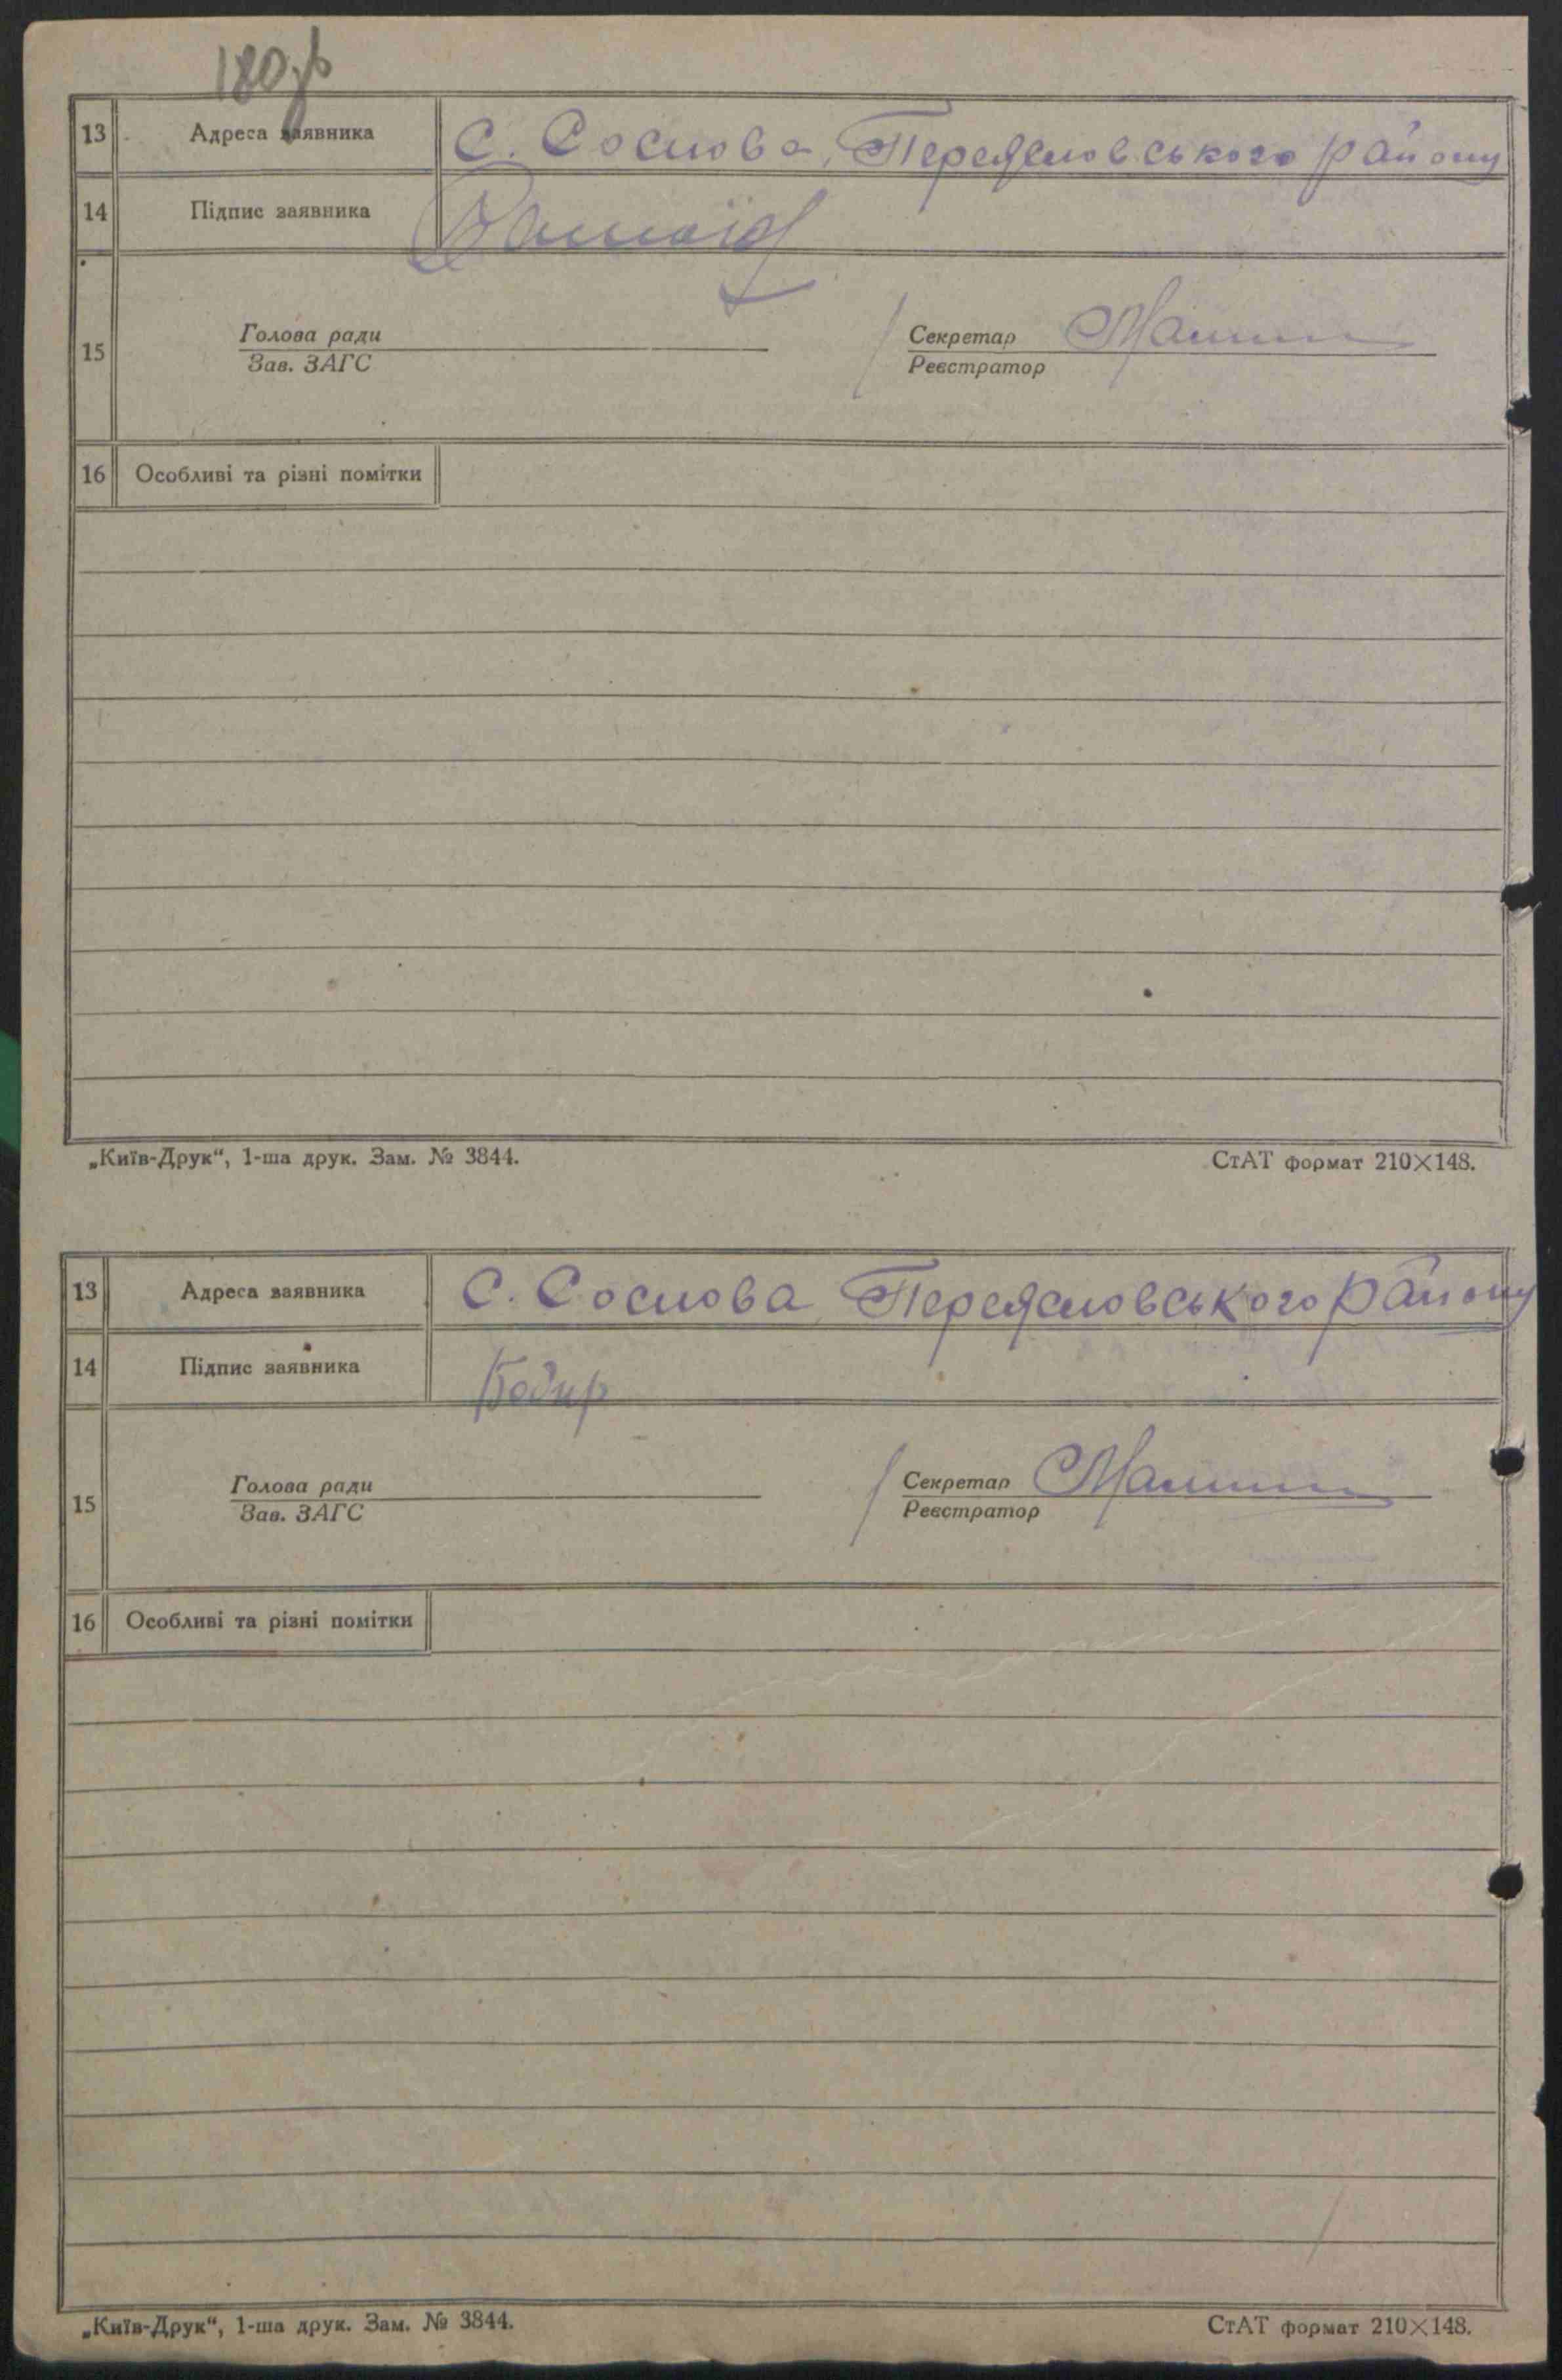 180зв
13 Адреса заявника С. Соснова, Переяславського району
14 Підпис заявника
15 Голова ради Секретар
Зав. ЗАГС Реєстратор
16 Особливі та різні помітки
„Київ-Друк“, 1-ша друк. Зам. № 3844. СтАТ формат 210×148.
13 Адреса заявника С. Соснова Переясловського району
14 Підпис заявника Бодир
15 Голова ради Секретар
Зав. ЗАГС Реєстратор
16 Особливі та різні помітки
„Київ-Друк“, 1-ша друк. Зам. № 3844. СтАТ формат 210×148.